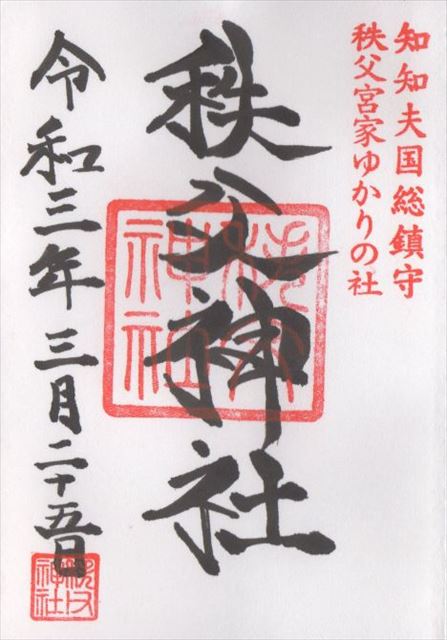 知知夫国総鎮守
秩父宮家ゆかりの社
秩父神社
秩父神社
令和三年三月二十五日
秩父神社